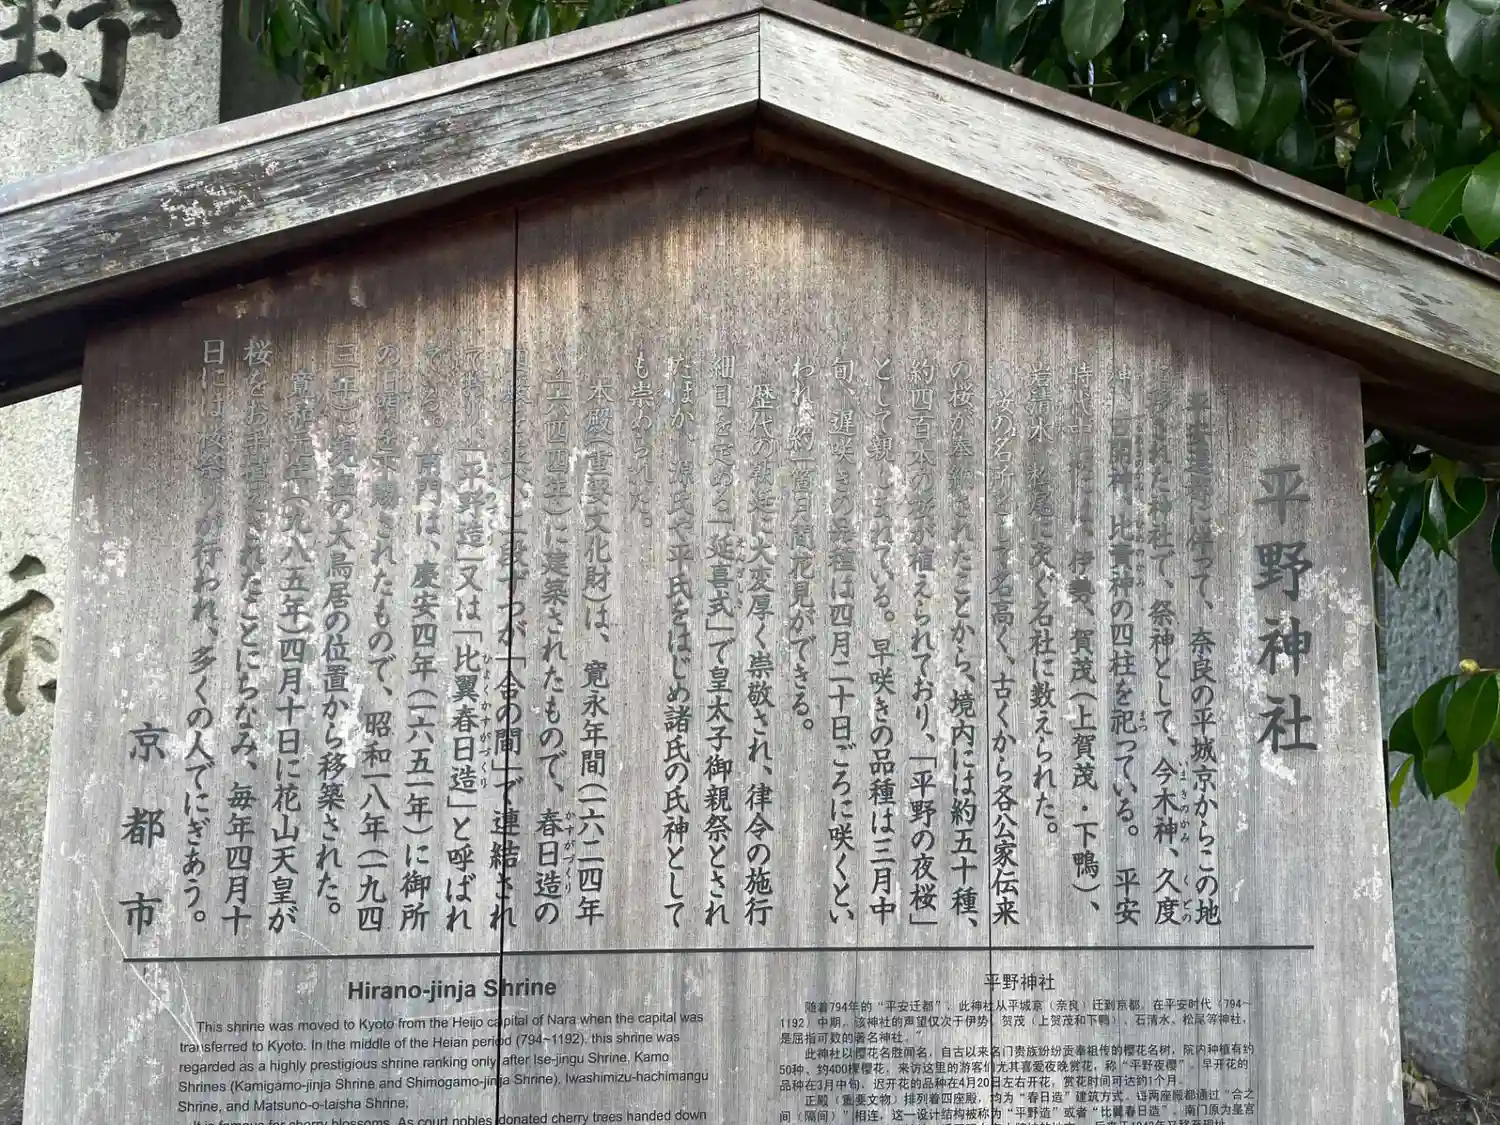 平野神社
平安遷都に伴って、奈良の平城京からこの地
に移された神社で、祭神として、今木神、久度
神、古開神、比賣神の四柱を祀っている。平安
時代中期には、伊勢、賀茂(上賀茂・下鴨)、
岩清水、松尾に次ぐ名社に数えられた。
桜の名所として名高く、古くから各公家伝来
の桜が奉納されたことから、境内には約五十種、
約四百本の桜が植えられており、「平野の夜桜」
として親しまれている。早咲きの品種は三月中
旬、遅咲きの品種は四月二十日ごろに咲くとい
われ、約一箇月間花見ができる。
歴代の朝廷に大変厚く崇敬され、律令の施行
細目を定める「延喜式」で皇太子御親祭とされ
たほか、源氏や平氏をはじめ諸氏の氏神として
も崇められた。
本殿(重要文化財)は、寛永年間(一六二四年
~一六四四年)に建築されたもので、春日造の
四殿を二殿一段ずつが「合の間」で連結され
ており、「平野造」又は「比翼春日造」と呼ばれ
ている。南門は、慶安四年(一六五一年)に御所
の旧門を下賜されたもので、昭和一八年(一九四
三年)に現在の大鳥居の位置から移築された。
寛和元年(九八五年)四月十日に花山天皇が
桜をお手植えされたことにちなみ、毎年四月十
日には桜祭りが行われ、多くの人でにぎあう。
京都市
Hirano-jinja Shrine
This shrine was moved to Kyoto from the Heijo capital of Nara when the capital was
transferred to Kyoto. In the middle of the Heian period (794~1192), this shrine was
regarded as a highly prestigious shrine ranking only after Ise-jingu Shrine, Kamo
Shrines (Kamigamo-jinja Shrine and Shimogamo-jinja Shrine), Iwashimizu-hachimangu
Shrine, and Matsuno-o-taisha Shrine.
It is famous for cherry blossoms. As court nobles donated cherry trees handed down
平野神社
随着794年的“平安迁都”，此神社从平城京（奈良）迁到京都。在平安时代（794~
1192）中期，该神社的声望仅次于伊势、贺茂（上贺茂和下鸭）、石清水、松尾等神社，
是屈指可数的著名神社。”
此神社以樱花名胜闻名，自古以来名门贵族纷纷贡奉祖传的樱花名树，院内种植有约
50种、约400棵樱花，来访这里的游客们尤其喜爱夜晚赏花，称“平野夜樱”。早开花的
品种在3月中旬，迟开花的品种在4月20日左右开花，赏花时间可达约1个月。
正殿（重要文物）排列着四座殿，均为“春日造”建筑方式，每两座殿都通过“合之
间（隔间）”相连，这一设计结构被称为“平野造”或者“比翼春日造”。南门原为皇宫